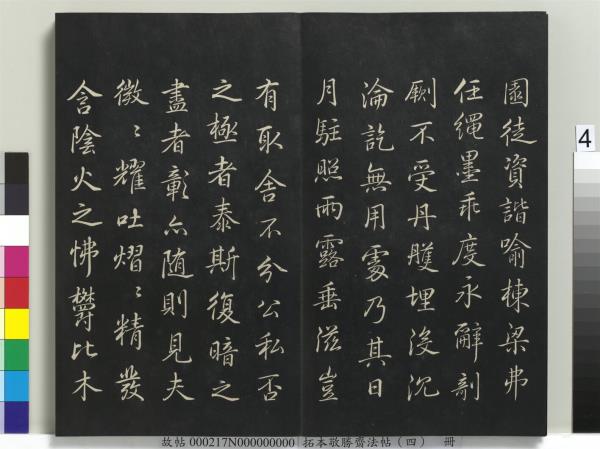 園徒資諧喻棟梁弗
任繩墨乖度永辭剞
劂不受丹雘埋沒沉
淪訖無用處乃其日
月駐照雨露垂滋豈
有取舍不分公私否
之極者泰斯復暗之
盡者彰亦随則見夫
微〻耀吐熠〻精發
含陰火之怫欝比木
4
故帖 000217N000000000 拓本敬勝齋法帖（四） 冊